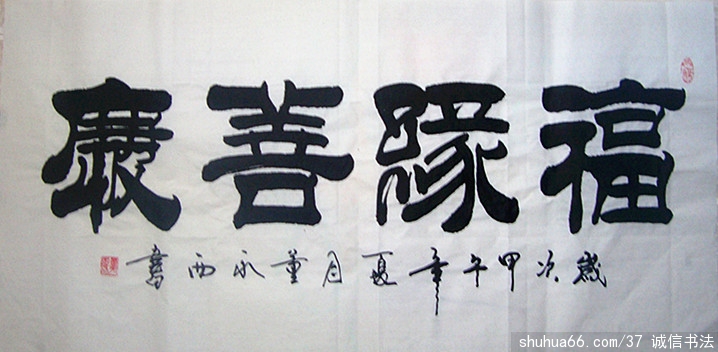 福緣善慶
歲次甲午年夏月董永西書
shuhua66.com/37 诚信书法